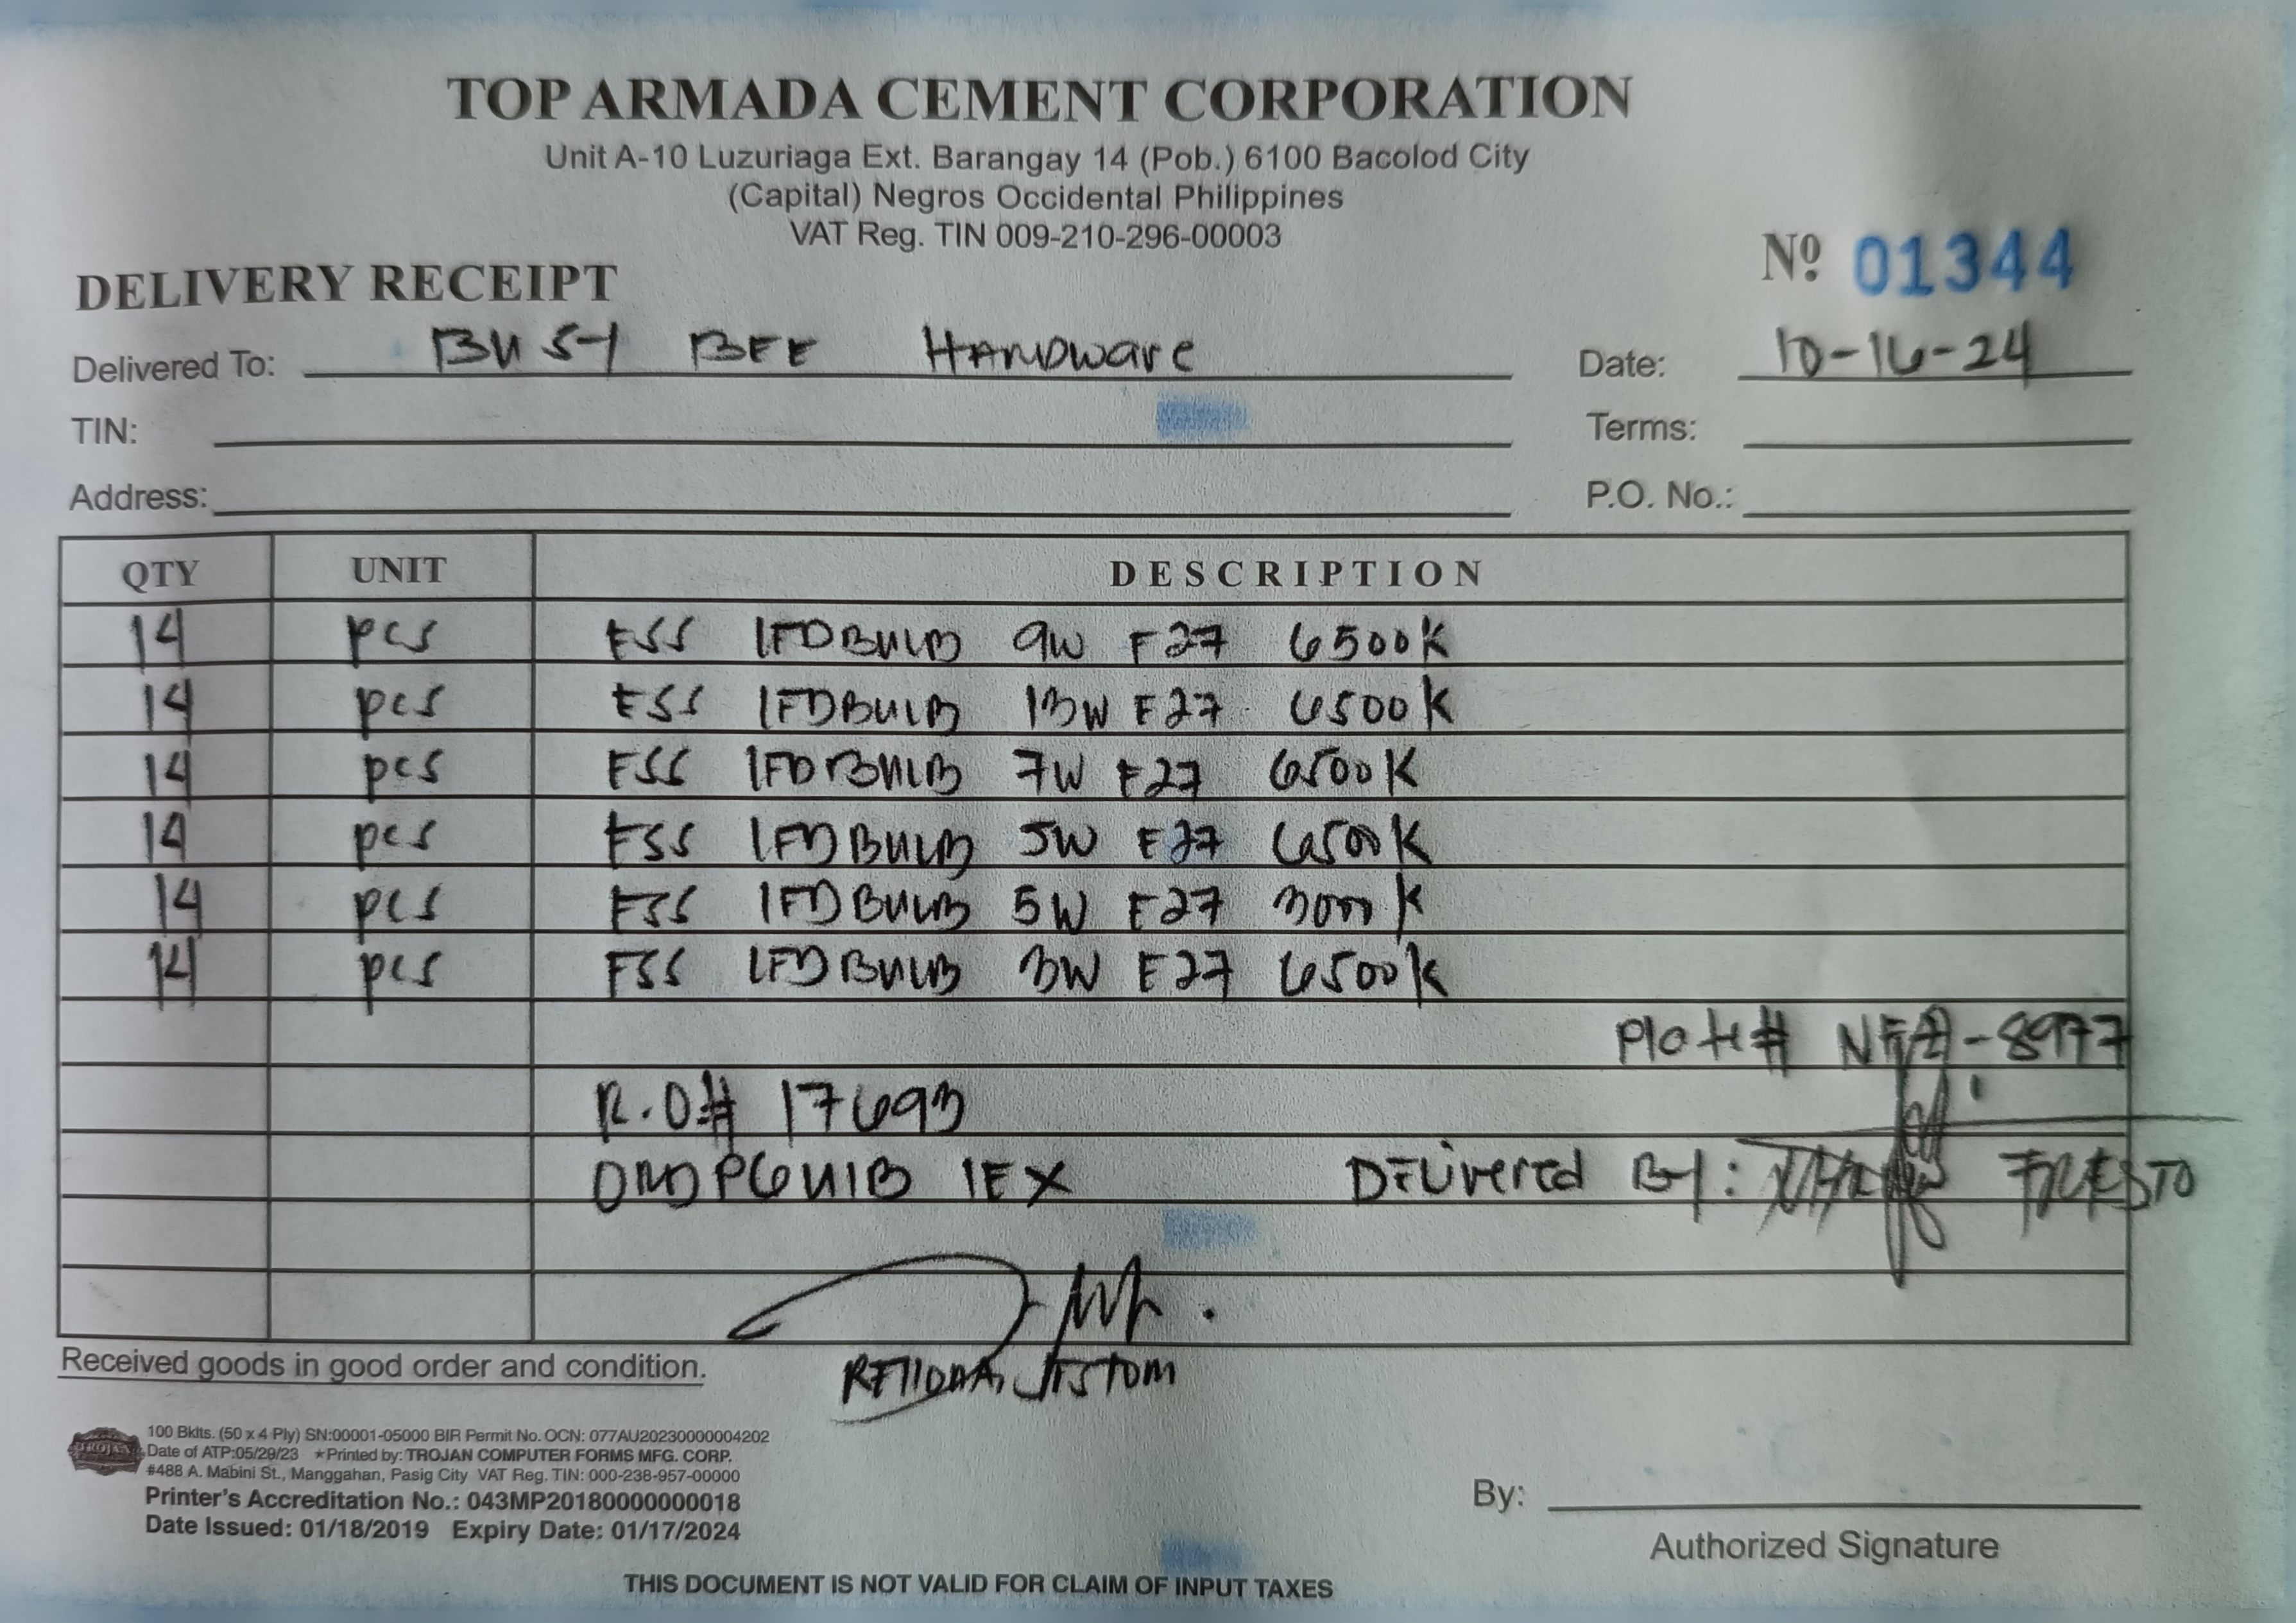 TOP ARMADA CEMENT CORPORATION
Unit A-10 Luzuriaga Ext. Barangay 14 (Pob.) 6100 Bacolod City
(Capital) Negros Occidental Philippines
VAT Reg. TIN 009-210-296-00003
Nº 01344
DELIVERY RECEIPT
Delivered To: BUSY BEE HARDware Date: 10-16-24
TIN: Terms:
Address: P.O. No.:
QTY UNIT DESCRIPTION
14 pcs ESS LEDBULB 9W E27 6500K
14 pcs ESS LEDBULB 13W E27 6500K
14 pcs ESS LEDBULB 7W E27 6500K
14 pcs ESS LEDBULB 5W E27 6500K
14 pcs ESS LEDBULB 5W E27 3000K
14 pcs ESS LEDBULB 3W E27 6500K
Plate# -8977
R.O# 17693
DELivered By:
Received goods in good order and condition.
TROJAN
100 Bklts. (50 x 4 Ply) SN:00001-05000 BIR Permit No. OCN: 077AU20230000004202
Date of ATP:05/29/23 ★Printed by: TROJAN COMPUTER FORMS MFG. CORP.
#488 A. Mabini St., Manggahan, Pasig City VAT Reg. TIN: 000-238-957-00000
Printer's Accreditation No.: 043MP20180000000018
Date Issued: 01/18/2019 Expiry Date: 01/17/2024
By:
Authorized Signature
THIS DOCUMENT IS NOT VALID FOR CLAIM OF INPUT TAXES